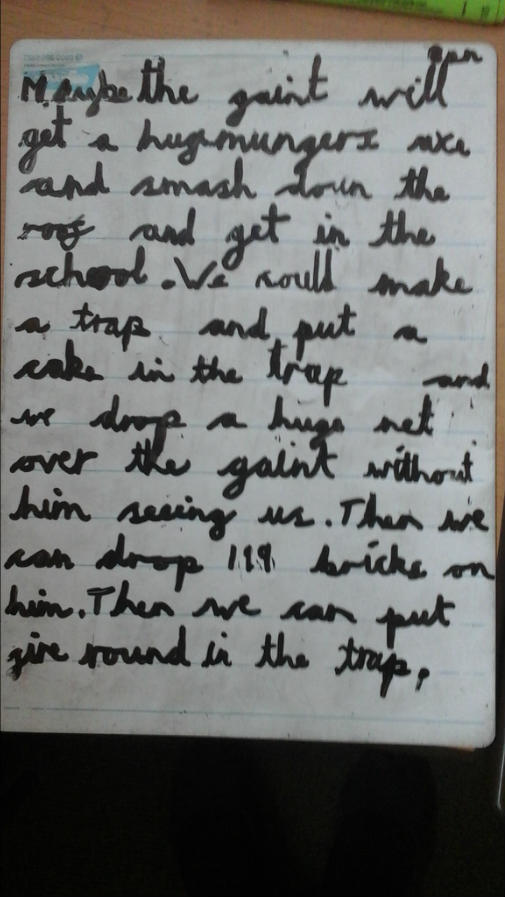 Maybe the gaint will
get a hugmungers axe
and smash down the
roof and get in the
school. We could make
a trap and put a
cake in the trap and
we drop a huge net
over the gaint without
him seeing us. Then we
can drop 119 bricks on
him. Then we can put
fire round in the trap.